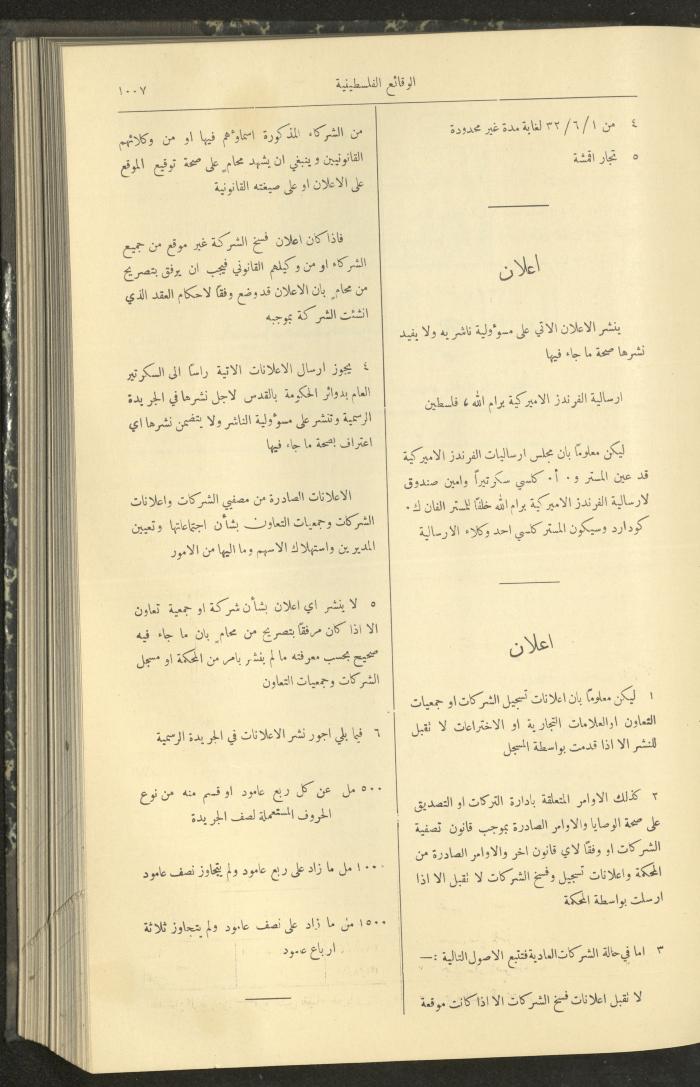 الوقائع الفلسطينية
١٠٠٧
٤ من ١/٦/٣٢ لغاية مدة غير محدودة
٥ تجار اقمشة
اعلان
ينشر الاعلان الاتي على مسوٴولية ناشريه ولا يفيد
نشرها صحة ما جاء فيها
ارسالية الفرندز الاميركية برام الله ، فلسطين
ليكن معلوماً بان مجلس ارساليات الفرندز الاميركية
قد عين المستر و٠ أ٠ كلسي سكرتيراً وامين صندوق
لارسالية الفرندز الاميركية برام الله خلفاً للمستر الفان ك٠
كودارد وسيكون المستر كلسي احد وكلاء الارسالية
اعلان
١ ليكن معلوماً بان اعلانات تسجيل الشركات او جمعيات
التعاون او العلامات التجارية او الاختراعات لا تقبل
للنشر الا اذا قدمت بواسطة المسجل
٢ كذلك الاوامر المتعلقة بادارة التركات او التصديق
على صحة الوصايا والاوامر الصادرة بموجب قانون تصفية
الشركات او وفقاً لاي قانون اخر والاوامر الصادرة من
المحكمة واعلانات تسجيل وفسخ الشركات لا تقبل الا اذا
ارسلت بواسطة المحكمة
٣ اما في حالة الشركات العادية فتتبع الاصول التالية :—
لا تقبل اعلانات فسخ الشركات الا اذا كانت موقعة
من الشركاء المذكورة اسماوٴهم فيها او من وكلائهم
القانونيين وينبغي ان يشهد محامٍ على صحة توقيع الموقع
على الاعلان او على صيغته القانونية
فاذا كان اعلان فسخ الشركة غير موقع من جميع
الشركاء او من وكيلهم القانوني فيجب ان يرفق بتصريح
من محامٍ بان الاعلان قد وضع وفقاً لاحكام العقد الذي
انشئت الشركة بموجبه
٤ يجوز ارسال الاعلانات الاتية راساً الى السكرتير
العام بدوائر الحكومة بالقدس لاجل نشرها في الجريدة
الرسمية وتنشر على مسوٴولية الناشر ولا يتضمن نشرها اي
اعتراف بصحة ما جاء فيها
الاعلانات الصادرة من مصفيي الشركات واعلانات
الشركات وجمعيات التعاون بشأن اجتماعاتها وتعيين
المديرين واستهلاك الاسهم وما اليها من الامور
٥ لا ينشر اي اعلان بشأن شركة او جمعية تعاون
الا اذا كان مرفقاً بتصريح من محامٍ بان ما جاء فيه
صحيح بحسب معرفته ما لم ينشر بامر من المحكمة او مسجل
الشركات وجمعيات التعاون
٦ فيما يلي اجور نشر الاعلانات في الجريدة الرسمية
٥٠٠ مل عن كل ربع عامود او قسم منه من نوع
الحروف المستعملة لصف الجريدة
١٠٠٠ مل ما زاد على ربع عامود ولم يتجاوز نصف عامود
١٥٠٠ مل ما زاد على نصف عامود ولم يتجاوز ثلاثة
ارباع عامود